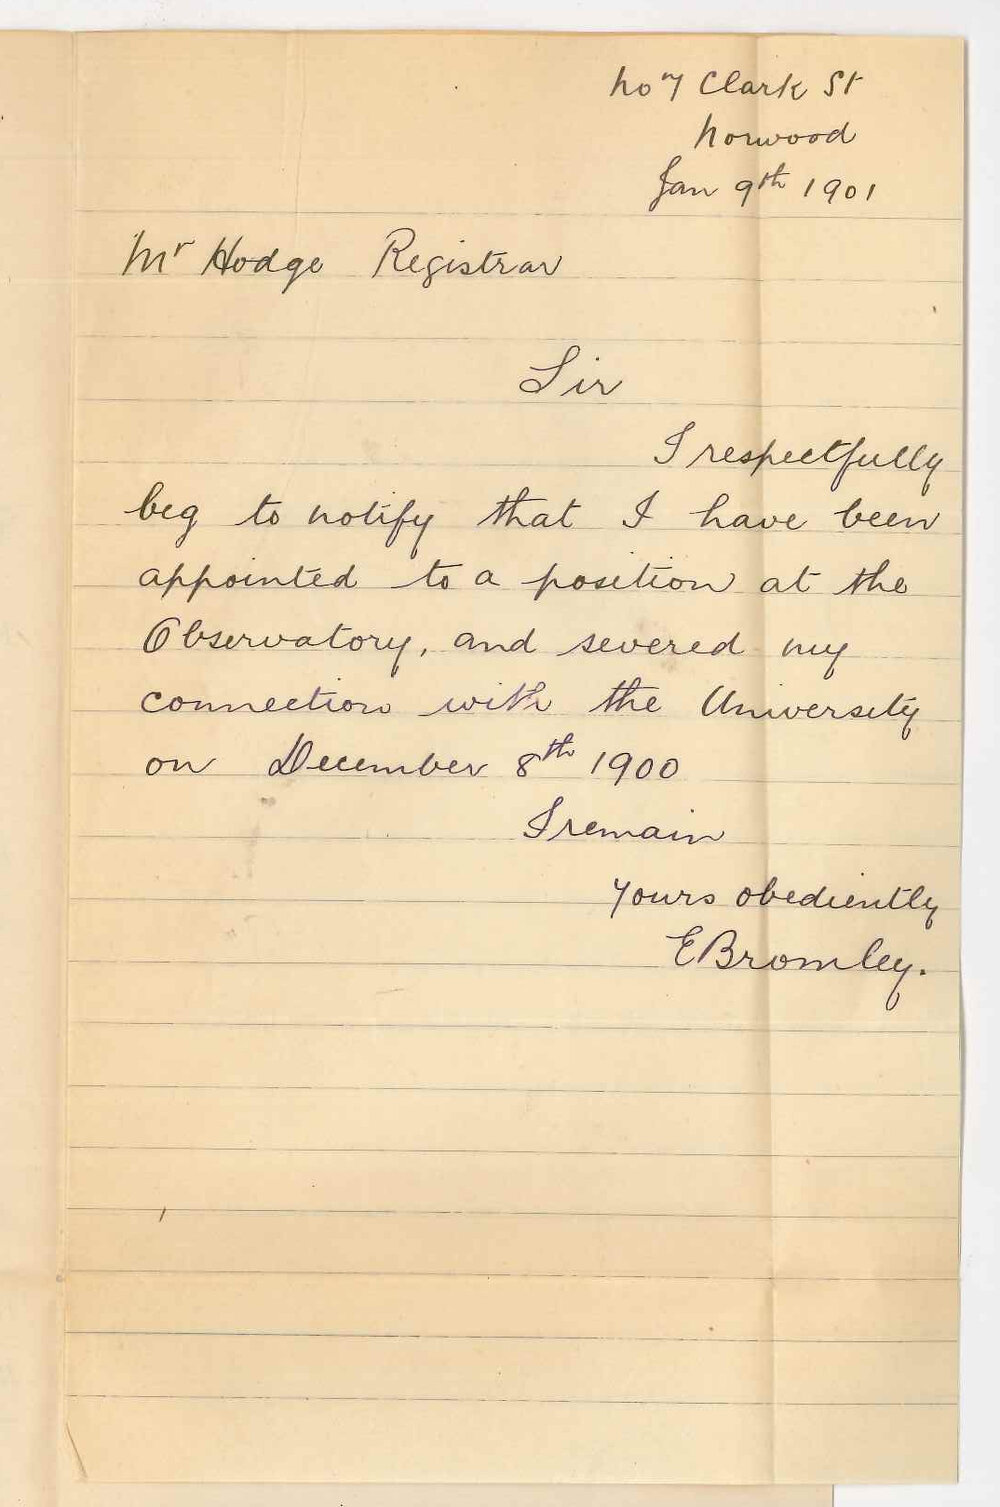 No 7 Clark St
Norwood
Jan 9th 1901
Mr Hodge Registrar
Sir
I respectfully
beg to notify that I have been
appointed to a position at the
Observatory, and severed my
connection with the University
on December 8th 1900
I remain
Yours obediently
E Bromley.